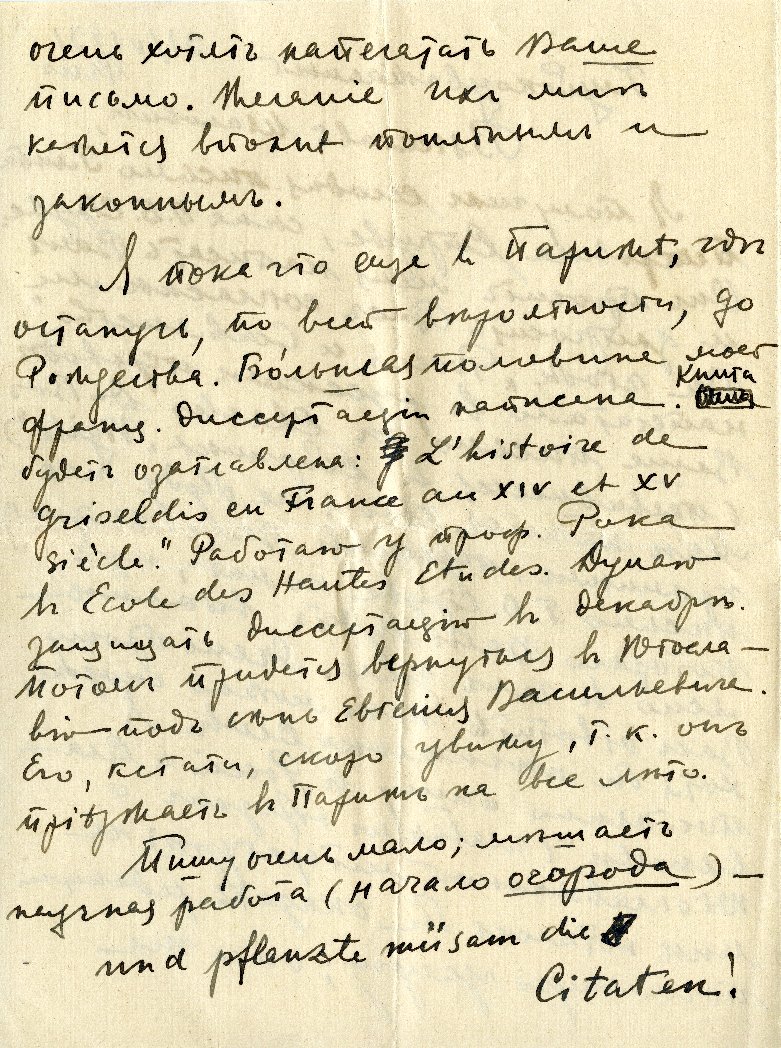 очень хотятъ напечатать Ваше
письмо. Желание ихъ мнѣ
кажется вполнѣ понятнымъ и
законнымъ.
Я пока что еще в Парижѣ, гдѣ
останусь, по всей вѣроятности, до
Рождества. Бо́льшая половина моей
франц. диссертаціи написана. Книга
будетъ озаглавлена: L'histoire de
Griseldis en France au XIV et XV
siècle." Работаю у проф. Рока
в Ecole des Hautes Etudes. Думаю
защищать диссертацію в декабрѣ.
Потомъ придется вернуться в Югосла-
вію подъ сѣнь Евгенія Васильевича.
Его, кстати, скоро увижу, т. к. онъ
пріѣзжаетъ в Парижъ на все лѣто.
Пишу очень мало; мѣшаетъ
научная работа (начало огорода) —
und pflanzte müsam die
Citaten!